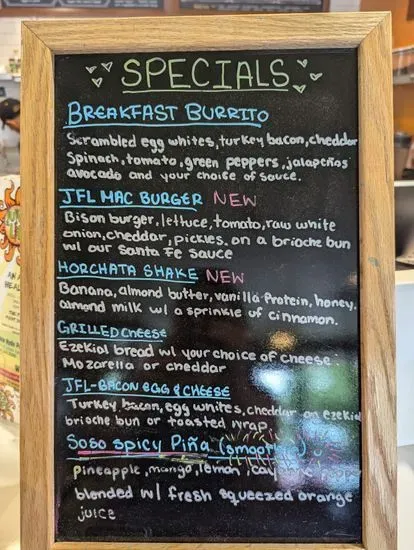 SPECIALS
BREAKFAST BURRITO
Scrambled egg whites, turkey bacon, cheddar
Spinach, tomato, green peppers, jalapeños
avocado and your choice of sauce.
JFL MAC BURGER NEW
Bison burger, lettuce, tomato, raw white
onion, cheddar, pickles. on a brioche bun
w/ our Santa Fe sauce
HORCHATA SHAKE NEW
Banana, almond butter, vanilla protein, honey.
almond milk w/ a sprinkle of cinnamon.
GRILLED CHEESE
Ezekial bread w/ your choice of cheese.
Mozarella or cheddar
JFL-BACON EGG & CHEESE
Turkey bacon, egg whites, cheddar on ezekial
brioche bun or toasted wrap.
Soso spicy Piña (smoothie)
pineapple, mango, lemon,
blended w/ fresh squeezed orange
juice